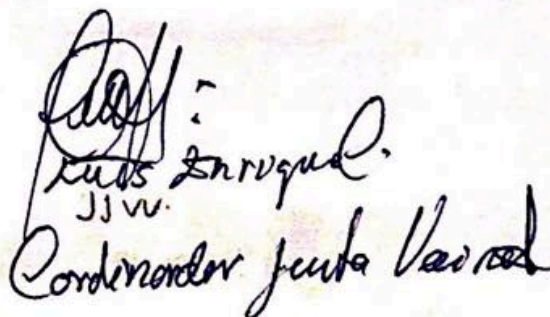 Luis Enrique.
JJVV.
Cordinordor Junta Vecinal